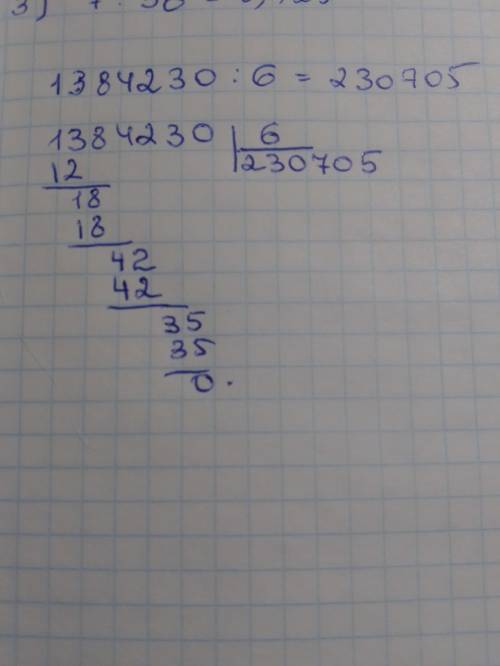 1384230 : 6 = 230705
1384230 6
12 230705
18
18
42
42
35
35
0.